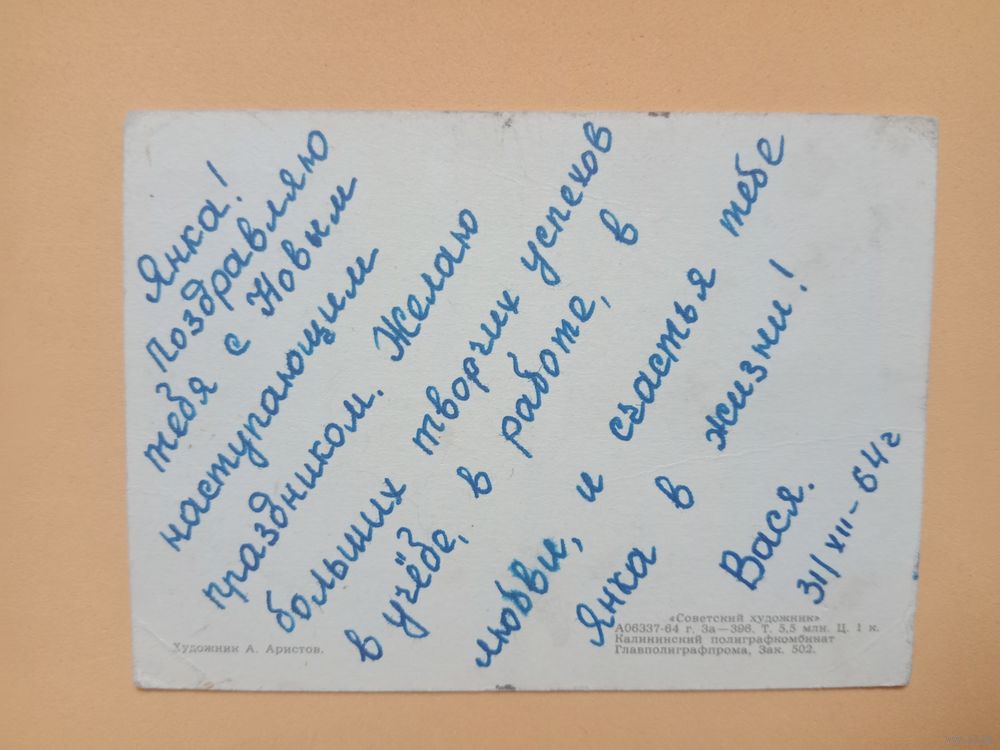 Янка!
Поздравляю
тебя с Новым
наступающим
праздником. Желаю
больших творчих успехов
в учёбе, в работе, в
любви, и счастья тебе
Янка в жизни!
Вася.
31/XII-64г
Художник А. Аристов.
«Советский художник»
А06337-64 г. За—396. Т. 5,5 млн. Ц. 1 к.
Калининский полиграфкомбинат
Главполиграфпрома, Зак. 502.